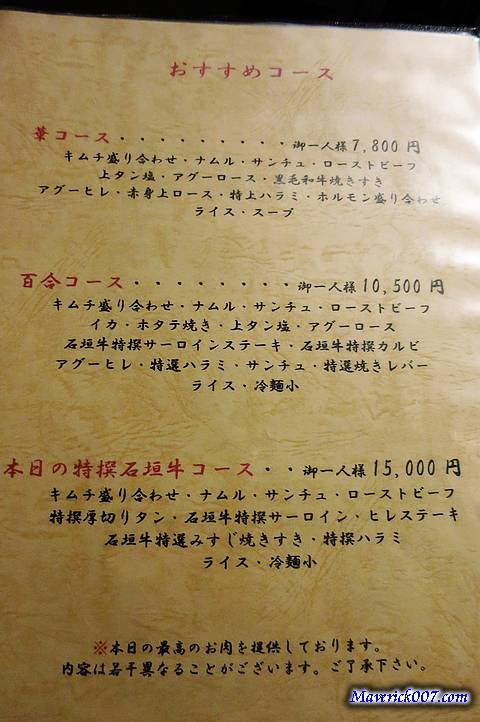 おすすめコース
華コース・・・・・・・・・御一人様7,800円
キムチ盛り合わせ・ナムル・サンチュ・ローストビーフ
上タン塩・アグーロース・黒毛和牛焼きすき
アグーヒレ・赤身上ロース・特上ハラミ・ホルモン盛り合わせ
ライス・スープ
百合コース・・・・・・・・御一人様10,500円
キムチ盛り合わせ・ナムル・サンチュ・ローストビーフ
イカ・ホタテ焼き・上タン塩・アグーロース
石垣牛特撰サーロインステーキ・石垣牛特撰カルビ
アグーヒレ・特選ハラミ・サンチュ・特選焼きレバー
ライス・冷麺小
本日の特撰石垣牛コース・・御一人様15,000円
キムチ盛り合わせ・ナムル・サンチュ・ローストビーフ
特撰厚切りタン・石垣牛特撰サーロイン・ヒレステーキ
石垣牛特選みすじ焼きすき・特撰ハラミ
ライス・冷麺小
※本日の最高のお肉を提供しております。
内容は若干異なることがございます。ご了承下さい。
Maverick007.com